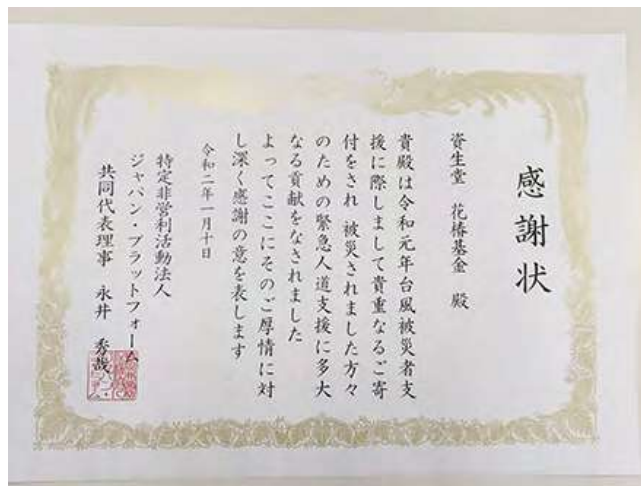 感謝状
資生堂 花椿基金 殿
貴殿は令和元年台風被災者支
援に際しまして貴重なるご寄
付をされ 被災されました方々
のための緊急人道支援に多大
なる貢献をなされました
よってここにそのご厚情に対
し深く感謝の意を表します
令和二年一月十日
特定非営利活動法人
ジャパン・プラットフォーム
共同代表理事 永井 秀哉